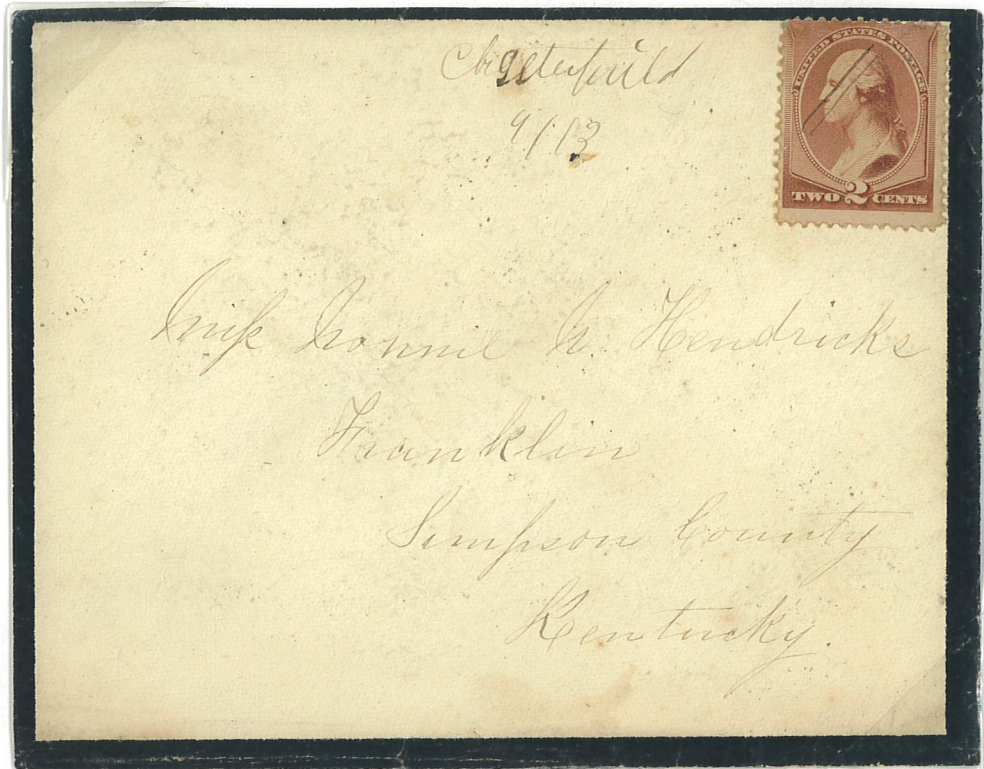 Chesterfield
9/13
UNITED STATES POSTAGE
TWO 2 CENTS
Miss Nonnie N. Hendricks
Franklin
Simpson County
Kentucky.